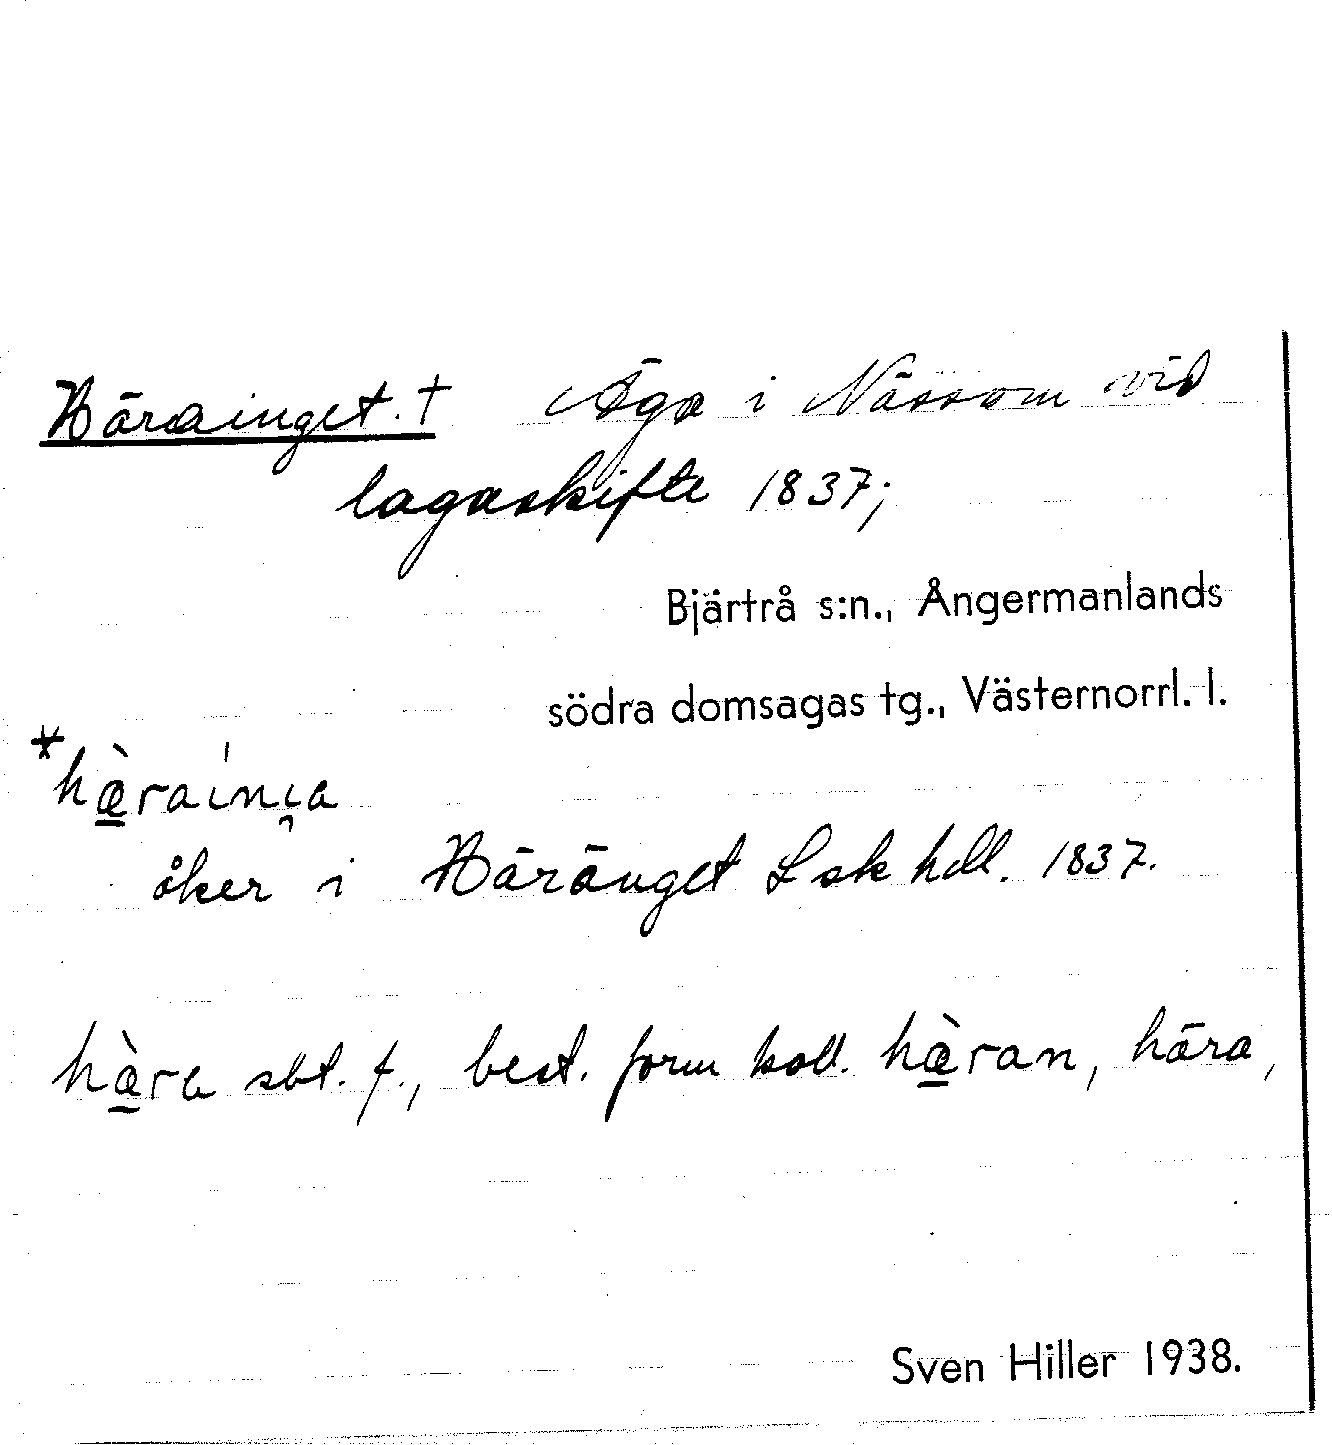 Härainget. † Äga i Nässom vid
lagaskifte 1837;
Bjärtrå s:n., Ångermanlands
södra domsagas tg., Västernorrl. l.
*hæ̀raiŋa
åker i Häränget Lsk hdl. 1837.
hæ̀ra sbt. f., best. form koll. hæ̀ran, hära,
Sven Hiller 1938.